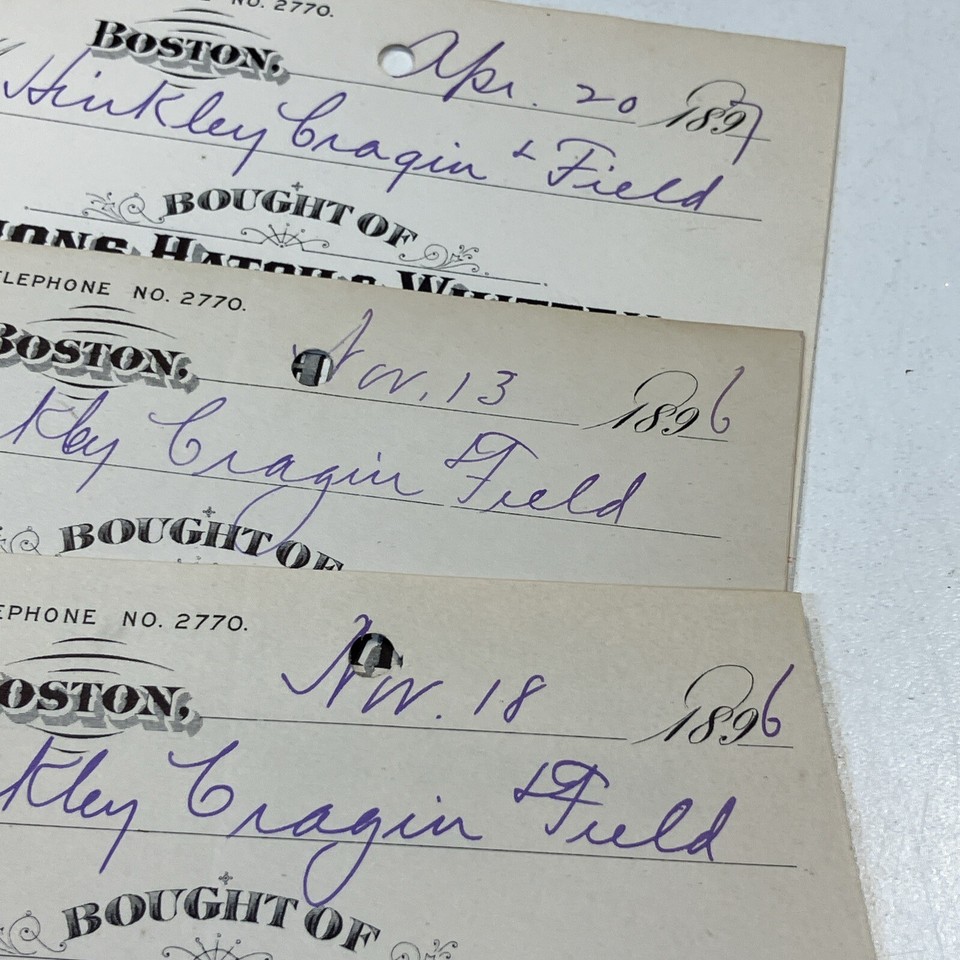 NO. 2770.
BOSTON, Apr. 20 1897
Hinkley Cragin & Field
BOUGHT OF
HATCH & WHITTEN
TELEPHONE NO. 2770.
BOSTON, Nov. 13 1896
kley Cragin & Field
BOUGHT OF
EPHONE NO. 2770.
OSTON, Nov. 18 1896
kley Cragin & Field
BOUGHT OF